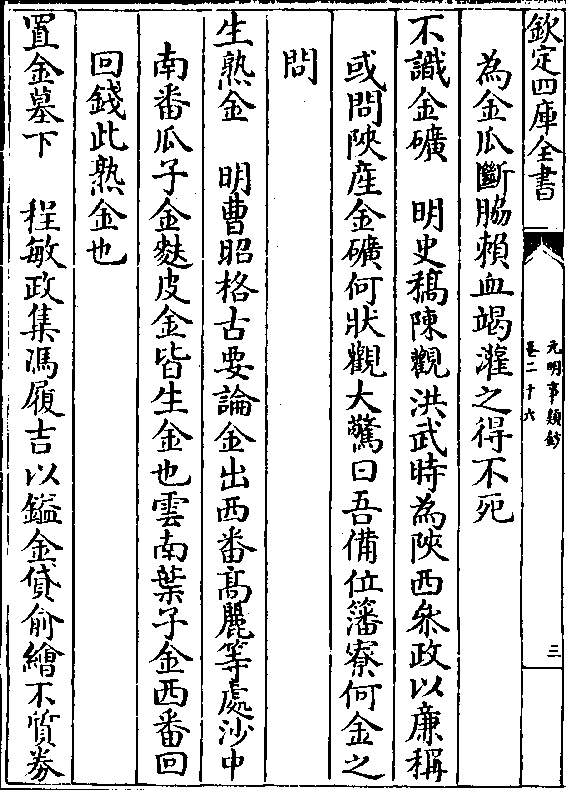 欽定四庫全書
元明事類鈔
卷二十六
三
為金瓜斷脇賴血竭灌之得不死
不識金礦　明史稿陳觀洪武時為陜西叅政以廉稱
或問陜産金礦何狀觀大驚曰吾備位藩寮何金之
問
生熟金　明曹昭格古要論金出西番髙麗等處沙中
南番瓜子金麩皮金皆生金也雲南葉子金西番回
回錢此熟金也
置金墓下　程敏政集馮履吉以鎰金貸俞繪不質劵